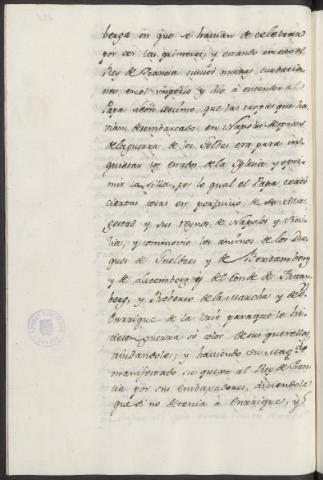 berga en que se havian de celebrar
por ser las primeras, y estando en esto el
Rey de Francia
en el Imperio y dio á entender al
Papa Leon decimo, que las tropas que ha-
vian desembarcado en Napoles despues
de la guerra de los Geldes era para in-
quietar los estados de la Iglesia y opri-
mir la silla, por lo qual el Papa
ciertas cosas en perjuicio de su Ma-
gestad y sus Reynos de Napoles y Sici-
lia, y conmovio los animos de los Du-
ques de Gueldres y de
y de Lucemberg y del Conde de
berg, y Roberto de la Marcha y de Dn
Enrrique de la para que le hi-
ciesen guerra so color de sus querellas
aiudandoles; y haviendo su Magd
manifestado su quexa al Rey de Fran-
cia por sus embaxadores, diciendole
que si no detenia á Enrrique, y